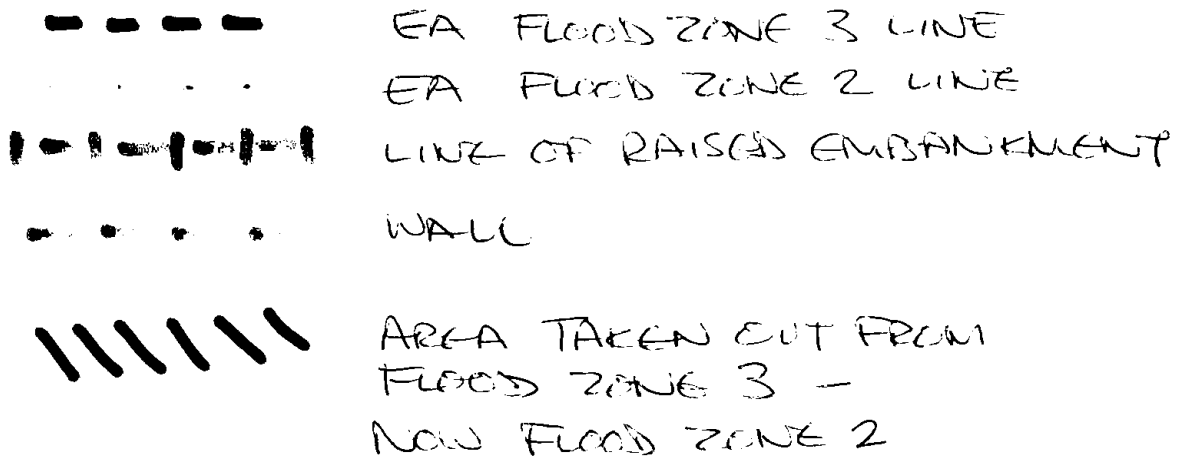 EA FLOOD ZONE 3 LINE
EA FLOOD ZONE 2 LINE
LINE OF RAISED EMBANKMENT
WALL
AREA TAKEN OUT FROM
FLOOD ZONE 3 -
NOW FLOOD ZONE 2